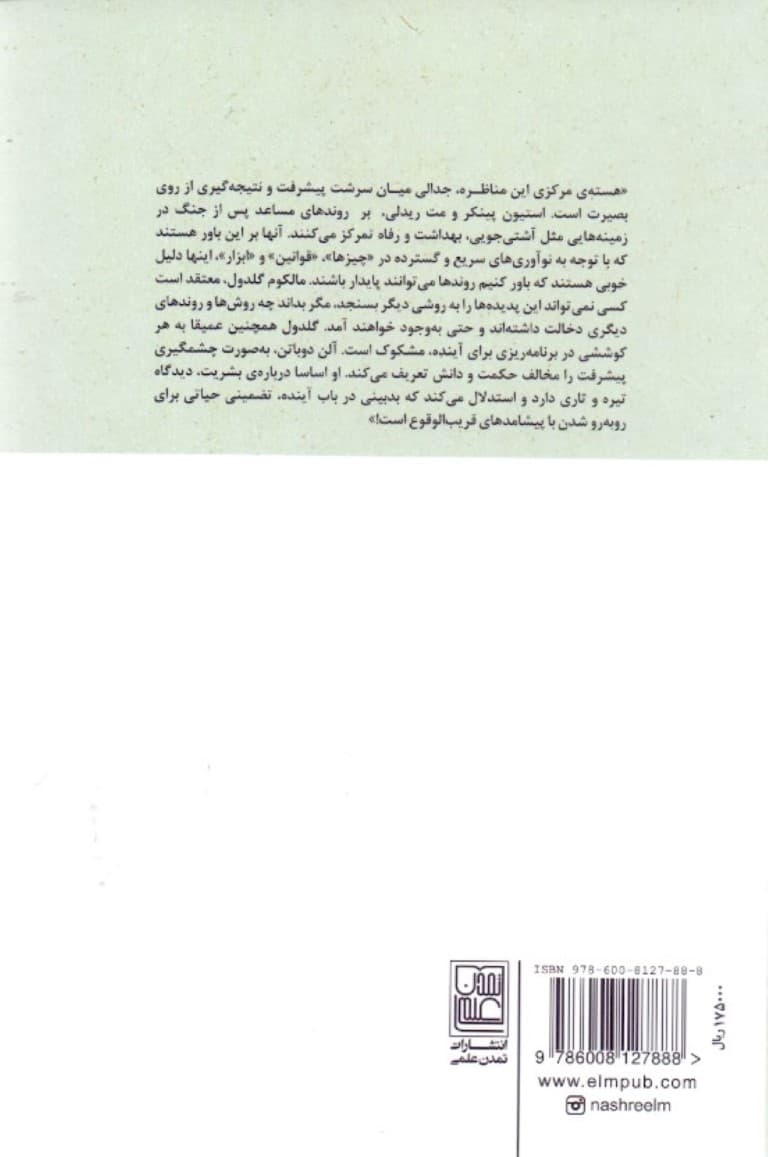 «هسته‌ی مرکزی این مناظره، جدالی میان سرشت پیشرفت و نتیجه‌گیری از روی
بصیرت است. استیون پینکر و مت ریدلی، بر روندهای مساعد پس از جنگ در
زمینه‌هایی مثل آشتی‌جویی، بهداشت و رفاه تمرکز می‌کنند. آنها بر این باور هستند
که با توجه به نوآوری‌های سریع و گسترده در «چیزها»، «قوانین» و «ابزار»، اینها دلیل
خوبی هستند که باور کنیم روندها می‌توانند پایدار باشند. مالکوم گلدول، معتقد است
کسی نمی‌تواند این پدیده‌ها را به روشی دیگر بسنجد، مگر بداند چه روش‌ها و روندهای
دیگری دخالت داشته‌اند و حتی به‌وجود خواهند آمد. گلدول همچنین عمیقا به هر
کوششی در برنامه‌ریزی برای آینده، مشکوک است. آلن دوباتن، به‌صورت چشمگیری
پیشرفت را مخالف حکمت و دانش تعریف می‌کند. او اساسا درباره‌ی بشریت، دیدگاه
تیره و تاری دارد و استدلال می‌کند که بدبینی در باب آینده، تضمینی حیاتی برای
روبه‌رو شدن با پیشامدهای قریب‌الوقوع است!»
ISBN 978-600-8127-88-8
9 786008 127888 >
۱۷۵۰۰۰ ریال
www.elmpub.com
nashreelm
تمدن علمی
انتشارات
تمدن علمی